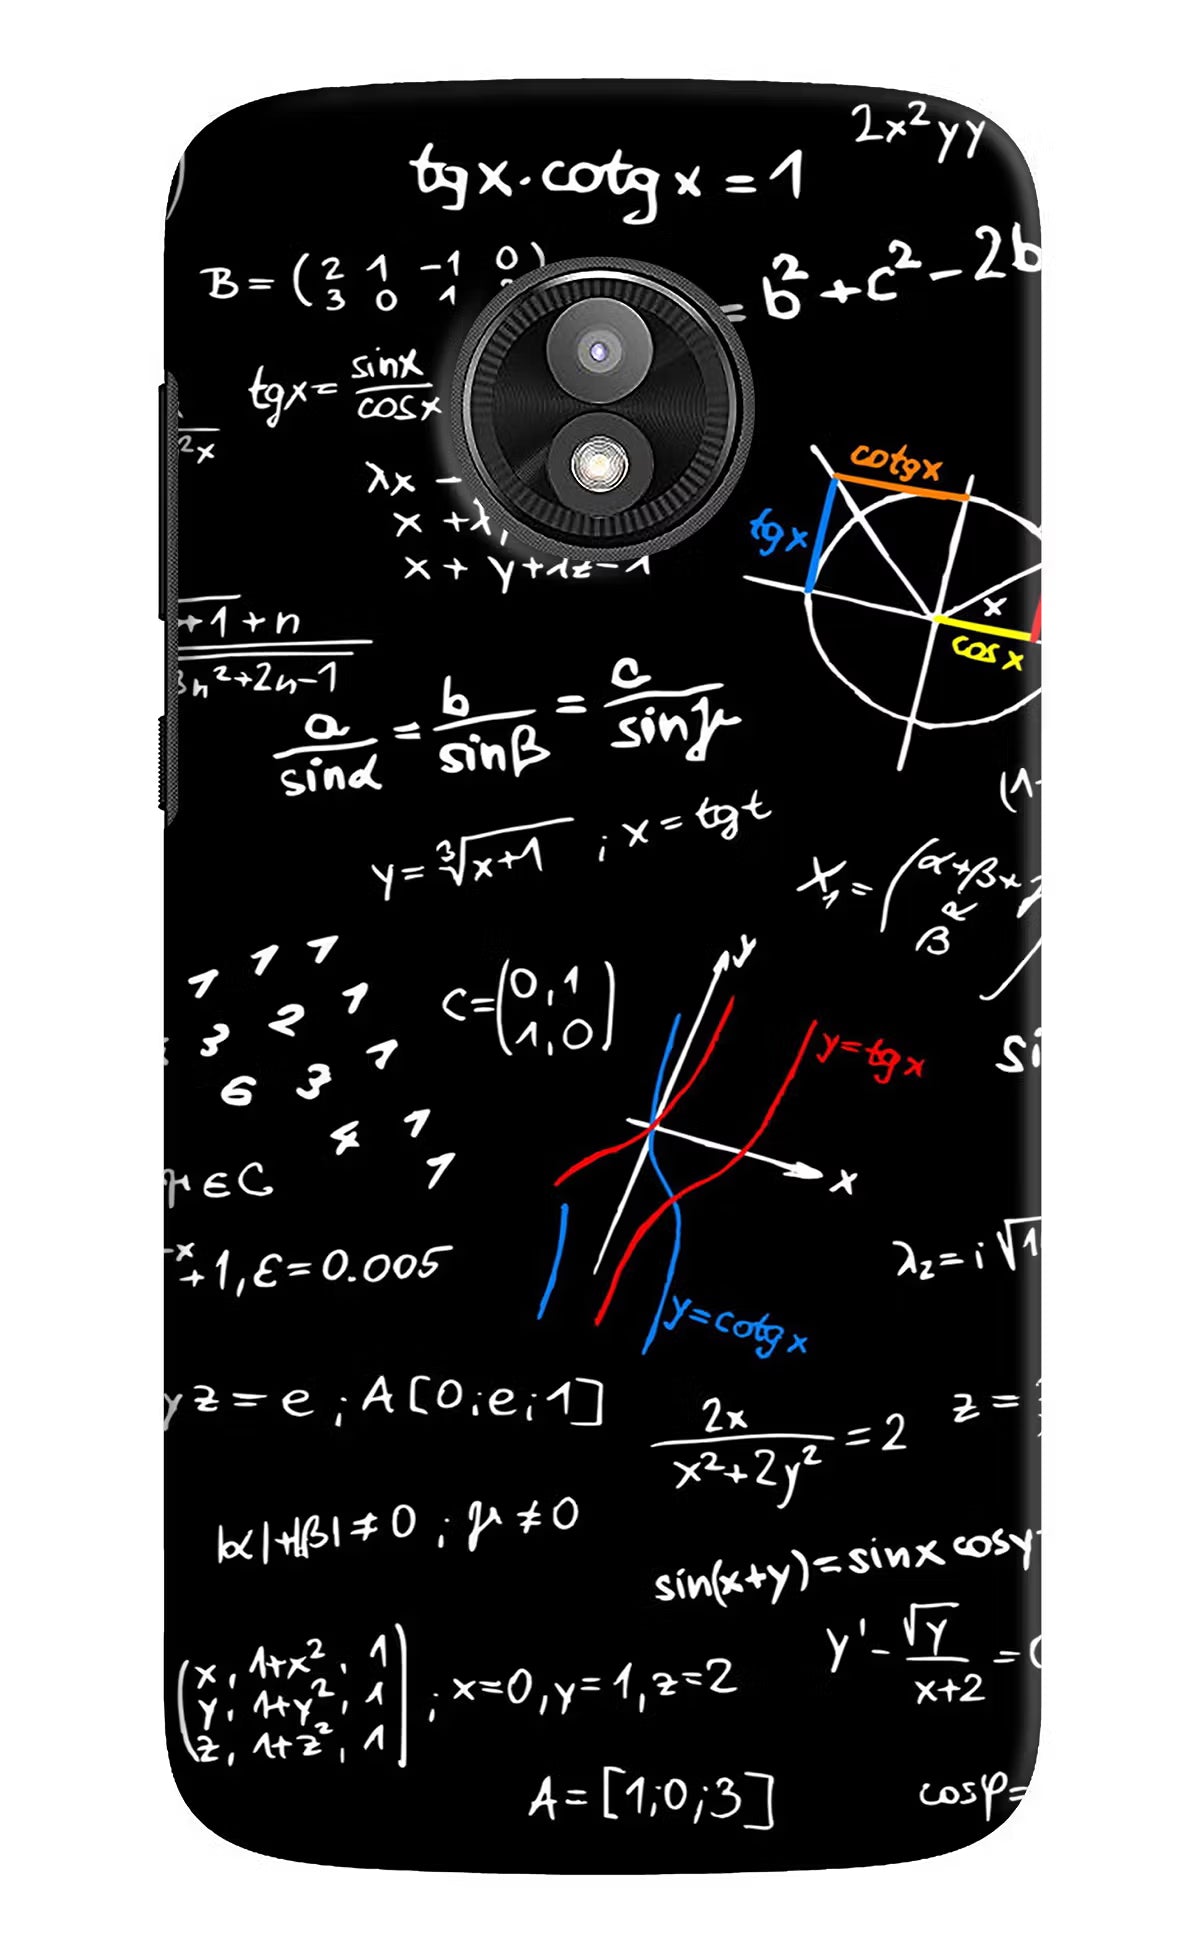 2x²yy
tgx·cotgx=1
B=(2 1 -1 0)
3 0 1
= b²+c²-2b
tgx= sinx
cosx
2x
λx -
x +λ,
x + y+λz-1
cotgx
tgx
x
cosx
+1+n
3n²+2n-1
a/sinα = b/sinβ = c/sinγ
y=³√x+1 ; x=tgt
(1-
X₁=(α+βx
β
1 1 1
3 2 1
6 3 1
4 1
1
C=(0,1
1,0)
y
y=tgx
x
y=cotgx
si
μ∈C
-x
+1,ε=0.005
λ₂=i√1
yz=e;A[0;e;1]
2x/x²+2y²=2
z=
|α|+|β|≠0 ; μ≠0
sin(x+y)=sinx cosy
y'-√y/x+2=0
(x, 1+x², 1
y, 1+y², 1
z, 1+z², 1) ; x=0,y=1,z=2
A=[1;0;3]
cosφ=